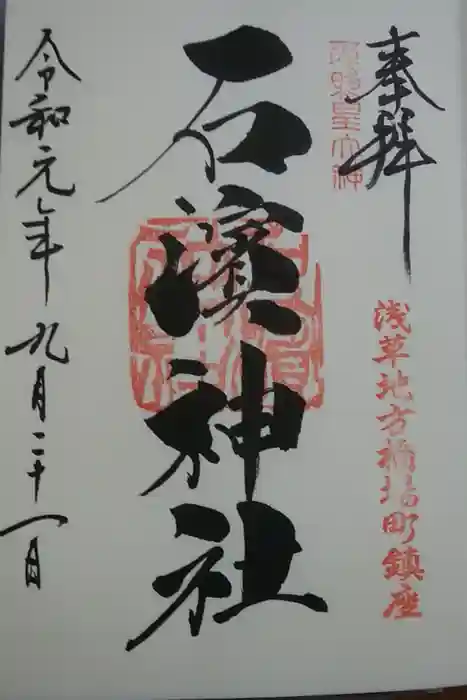 奉拝
浅草地方橋場町鎮座
石濱神社
令和元年九月二十一日